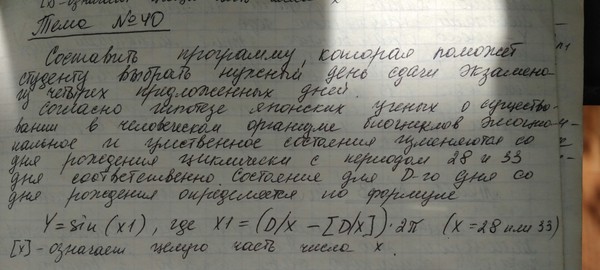 [x]-означает целую часть числа x
Тема №40
Составить программу, которая поможет
студенту выбрать нужный день сдачи экзамена
из четырех предложенных дней.
Согласно гипотезе японских ученых о существо-
вании в человеческом организме биоциклов эмоцио-
нальное и умственное состояния изменяются со
дня рождения циклически с периодом 28 и 33
дня соответственно. Состояние для D-го дня со
дня рождения определяется по формуле
Y=sin(x1), где x1=(D/x-[D/x])·2π (x=28 или 33)
[x]-означает целую часть числа x.